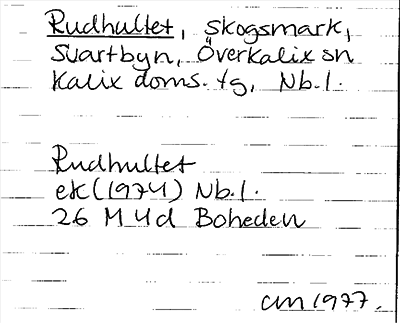 Rudhultet, skogsmark,
Svartbyn, Överkalix sn
Kalix doms. tg, Nb.l.
Rudhultet
ek (1974) Nb.l.
26 M 4d Boheden
cm 1977.